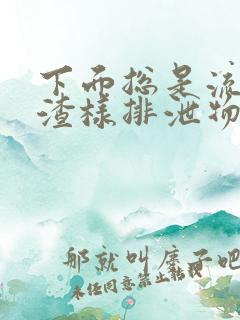 下面总是流
渣样排泄物
那就叫康子吧
未经同意禁止转载